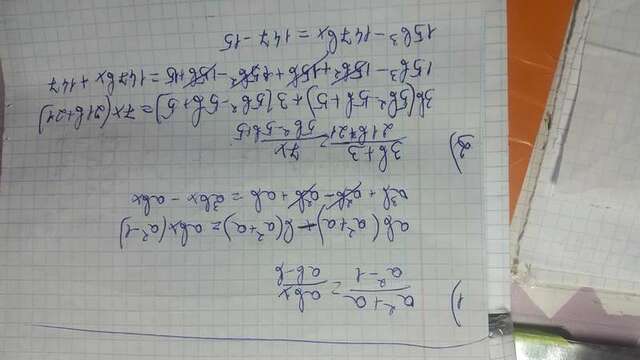 1) (a²+a)/(a²-1) = abx/(ab-b)
ab(a²+a)-b(a²+a)=abx(a²-1)
a³b+a²b-a²b+ab=a³bx-abx
2) (3b+3)/(21b+21) = 7x/(5b²-5b+5)
3b(5b²-5b+5)+3(5b²-5b+5)=7x(21b+21)
15b³-15b²+15b+15b²-15b+15=147bx+147
15b³-147bx=147-15